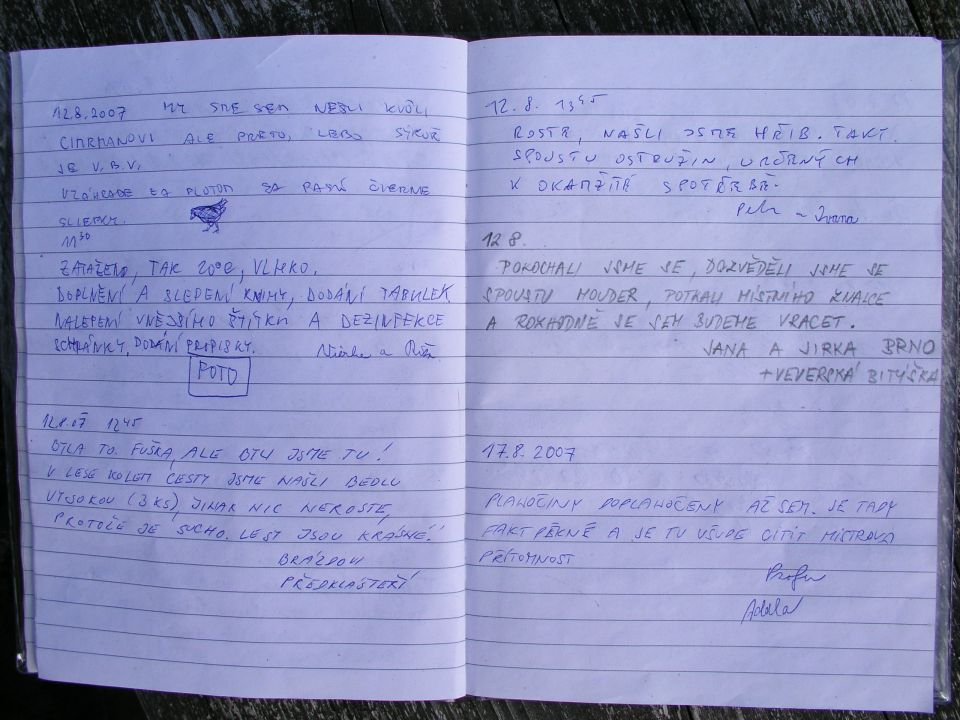 12.8.2007 MY SME SEM NEŠLI KVÔLI
CIMRMANOVI ALE PRETO, LEBO SÝKOŘ
JE V.B.V.
V ZÁHRADE ZA PLOTOM SA PASÚ ČIERNE
SLIEPKY.
11³⁰
ZATAŽENO, TAK 20°C, VLHKO.
DOPLNĚNÍ A SLEPENÍ KNIHY, DODÁNÍ TABULEK,
NALEPENÍ VNĚJŠÍHO ŠTÍTKU A DEZINFEKCE
SCHRÁNKY, DODÁNÍ PROPISKY.
FOTO
12.8.07 12⁴⁵
BYLA TO FUŠKA, ALE BYLI JSME TU!
V LESE KOLEM CESTY JSME NAŠLI BEDLU
VYSOKOU (3 KS), JINAK NIC NEROSTE,
PROTOŽE JE SUCHO. LESY JSOU KRÁSNÉ!
BRÁZDOVI
PŘEDKLÁŠTEŘÍ
12.8. 13⁴⁵
ROSTE, NAŠLI JSME HŘIB. TAKY
SPOUSTU OSTRUŽIN, URČENÝCH
K OKAMŽITÉ SPOTŘEBĚ.
Petr a Ivana
12 8.
POKOCHALI JSME SE, DOZVĚDĚLI JSME SE
SPOUSTU MOUDER, POTKALI MÍSTNÍHO ZNALCE
A ROZHODNĚ SE SEM BUDEME VRACET.
JANA A JIRKA BRNO
+ VEVERSKÁ BITÝŠKA
17.8. 2007
PLAHOČINY DOPLAHOČENY AŽ SEM. JE TADY
FAKT PĚKNĚ A JE TU VŠUDE CÍTIT MISTROVA
PŘÍTOMNOST
Adéla